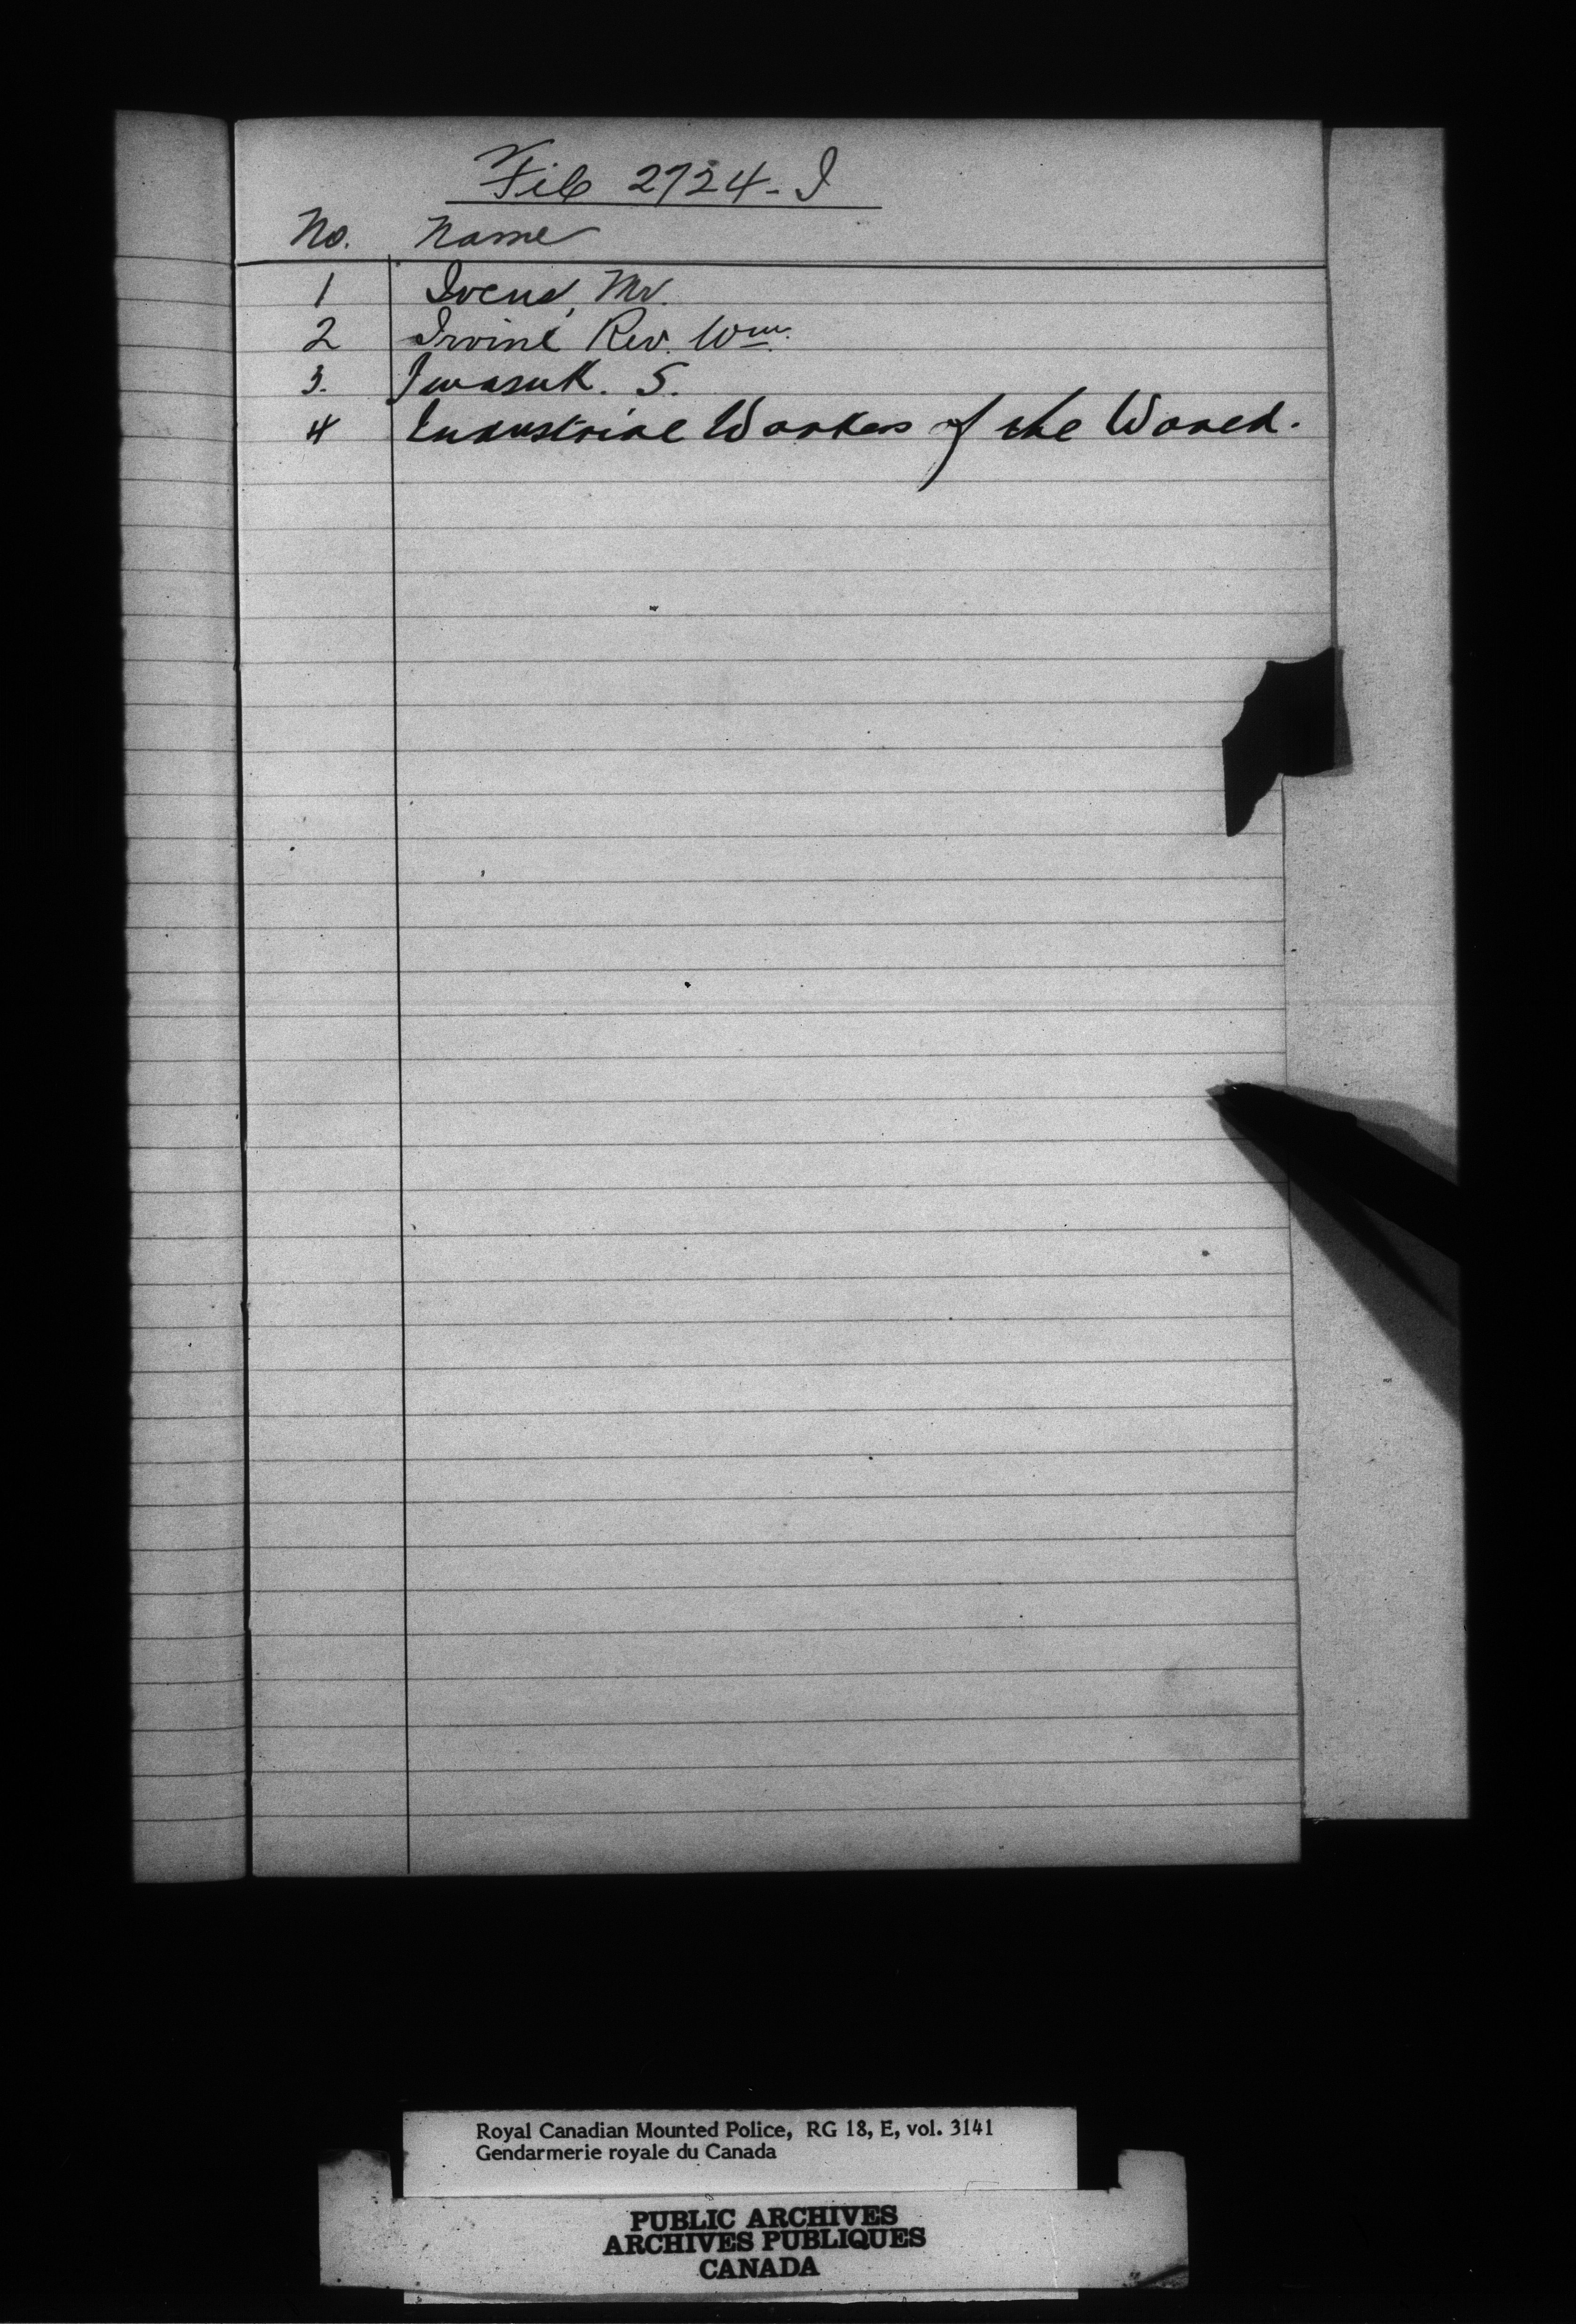 File 2724-I
No. Name
1 Ivens, Mr.
2 Irvine Rev. Wm.
3. Iwasuk. S.
4 Industrial Workers of the World.
Royal Canadian Mounted Police, RG 18, E, vol. 3141
Gendarmerie royale du Canada
PUBLIC ARCHIVES
ARCHIVES PUBLIQUES
CANADA